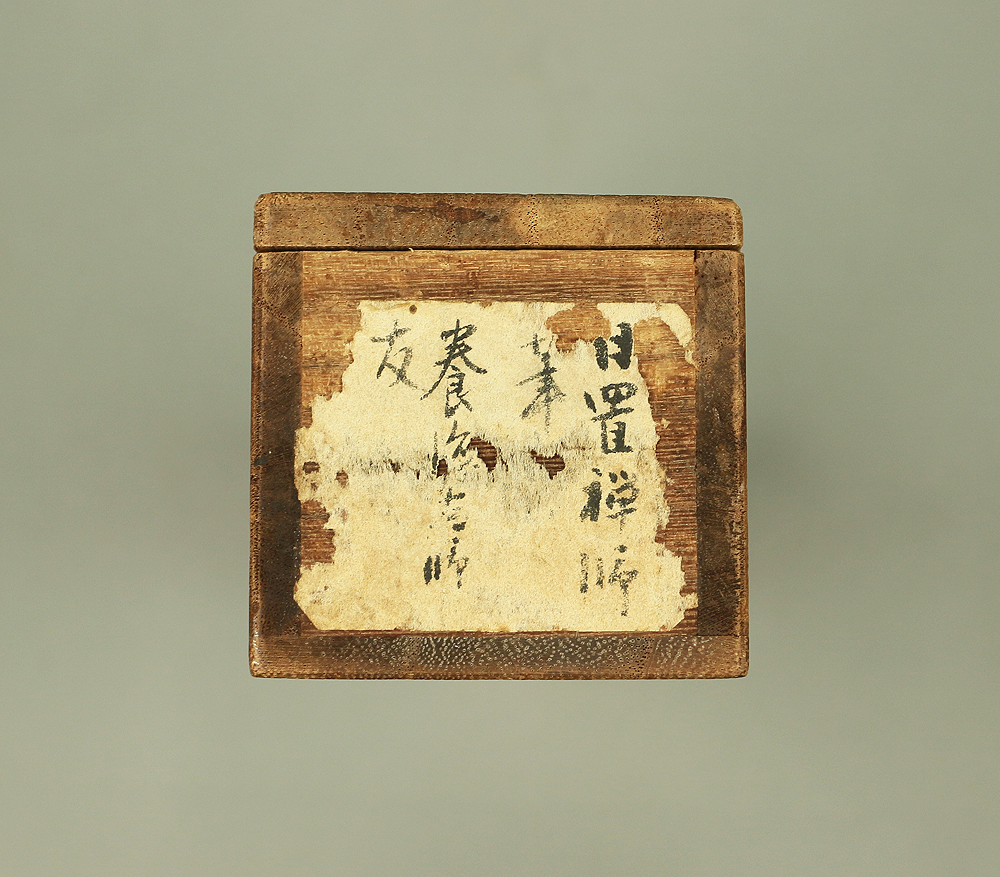 日置禅師
筆
養老師
友